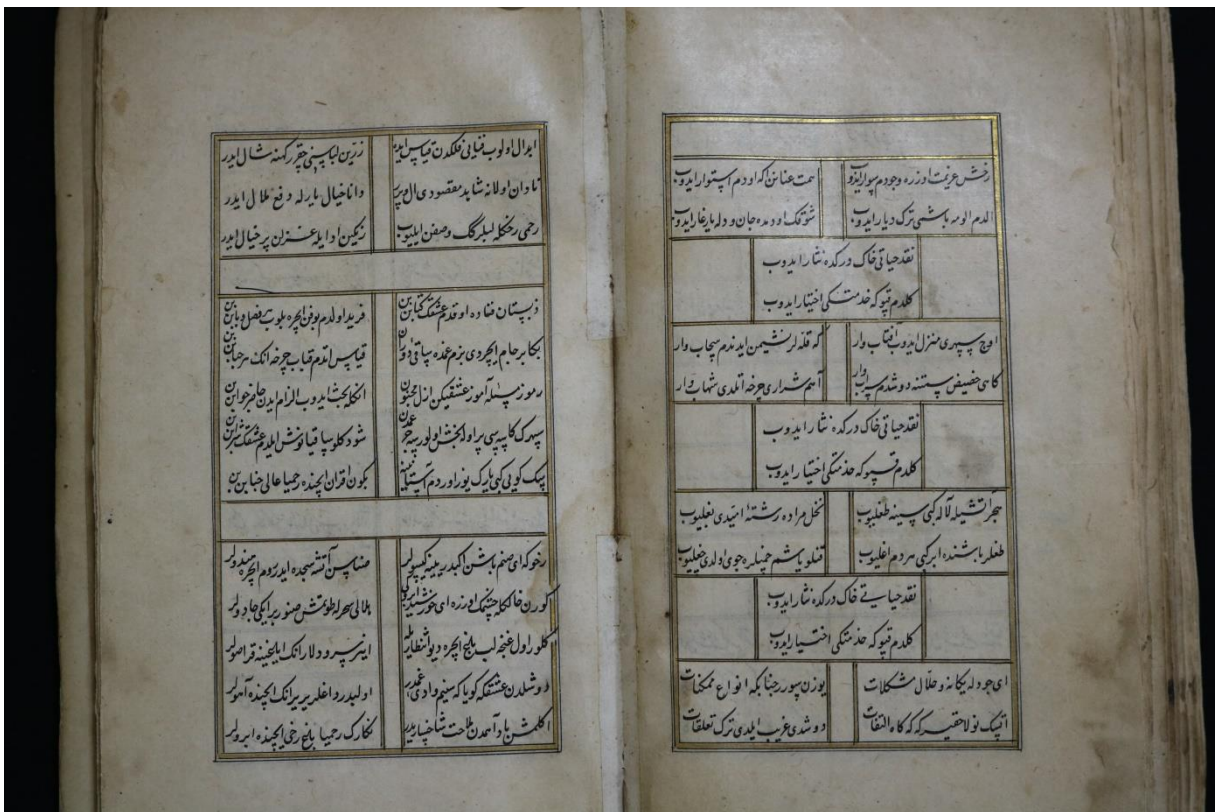 رخش عزیمت اوزره وجودم سوار ایدوب همت عناینن اکه اودم استوار ایدوب
الدم الومه باشمی ترک دیار ایدوب شوقک اودمده جان و دله یار غار ایدوب
نقد حیاتی خاک درکده نثار ایدوب
کلدم قپوکه خدمتکی اختیار ایدوب
اوج سپهری منزل ایدوب آفتاب وار که قله لر نشیمن ایدندم سحاب وار
کاهی حضیض پستنه دوشدم سراب وار آهم شراری چرخه اتلدی شهاب وار
نقد حیاتی خاک درکده نثار ایدوب
کلدم قپوکه خدمتکی اختیار ایدوب
هجر آتشیله لاله کبی سینه طغلیوب نخل مراده رشته امیدی بغلیوب
طغلر باشنده ابر کبی هردم اغلیوب قنلو یاشم جمنلره جوی اولدی چغلیوب
نقد حیاتی خاک درکده نثار ایدوب
کلدم قپوکه خدمتکی اختیار ایدوب
ای جود له یکانه و حلال مشکلات یوزن سورر جنابکه انواع ممکنات
ایتسک نولا حقیرکه که کاه التفات دوشدی غریب ایلدی ترک تعلقات
ابدال اولوب فنایی فلکدن قیاس ایدر زرین لباسنی چقرر کهنه شال ایدر
نادان اولانه شاید مقصودی ال ویرر دانا خیال یارله دفع ملال ایدر
رحمی رخکله لبلرگک وصفن ایلیوب رنکین ادا ایله غزلن پر خیال ایدر
دبستان فناده اوقدم عشقک کتابین بن فرید اولدم بو فن ایچره بلوب فصل و بابن بن
بکا بر جام ایچردی بزم غمده ساقی دوران قیاس اتدم قباب چرخه انک هر حبابن بن
رموز مسئله آموز عشقیکن ازل مجنون انکله بحث ایدوب الزام ایدن حاضر جوابن بن
سپهرک کاسه سی پر اولدی خوش اولور سه جرعمدن شو دکلو ساقیا نوش ایلدم عشقک شرابن بن
سک کویی کبی یارک یوز اوردم آستاننه بکون اقران ایچنده رحمیا عالی جنابن بن
رخوکه ای صنم باشن اکدیر سینه کیسولر صناسن آتشه سجده ایدر روم ایچره هندولر
کورن خالکله چشمک اوزره ای خورشید ابروکی هلالی سحرله طوتمش صنور بر ایکی جادولر
کلور اول غنجه لب باغ ایچره دیو انتظاریله اینر سرو دلارانک ایاغینه قرا صولر
دوشلدن عشقکه کویا که سنیم وادی غمدر اولبدر داغلر یر یر انک ایچنده آهولر
نکارک رحمیا باغ رخی ایچنده ابرولر